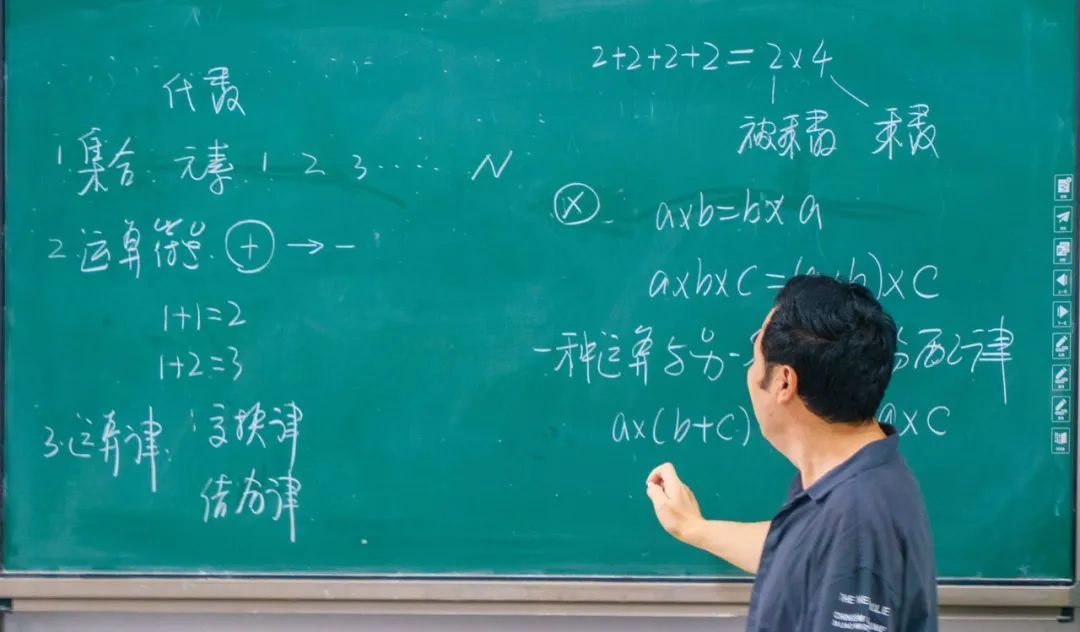 代数
1.集合 元素 1 2 3 ⋯⋯ N
2.运算符号 + → −
1+1=2
1+2=3
3.运算律 交换律
结合律
2+2+2+2=2×4
被乘数 乘数
× a×b=b×a
a×b×c=(a×b)×c
一种运算与另一 分配律
a×(b+c) a×c
THE ME